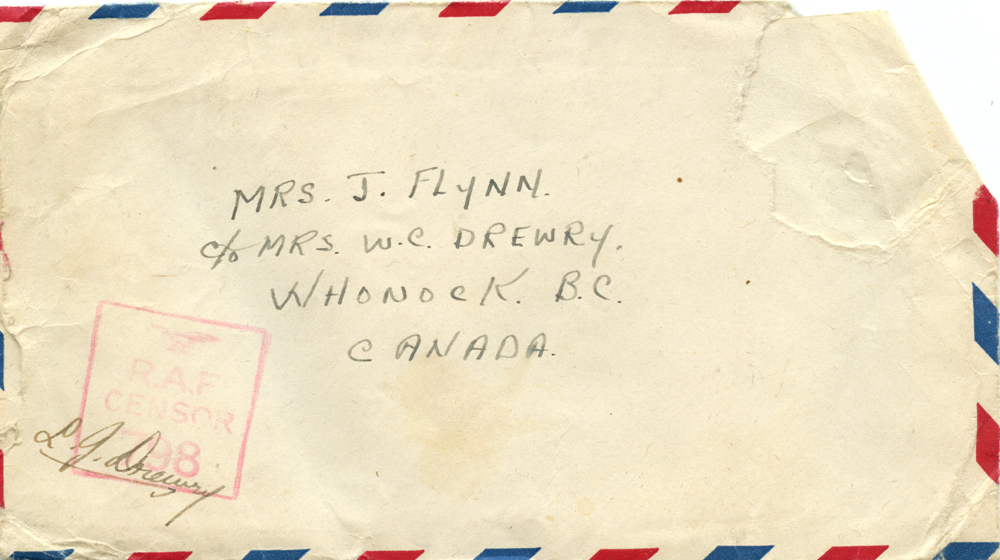 MRS. J. FLYNN.
c/o MRS. W.C. DREWRY.
WHONOCK. B.C.
CANADA.
R.A.F
CENSOR
98
Drewry